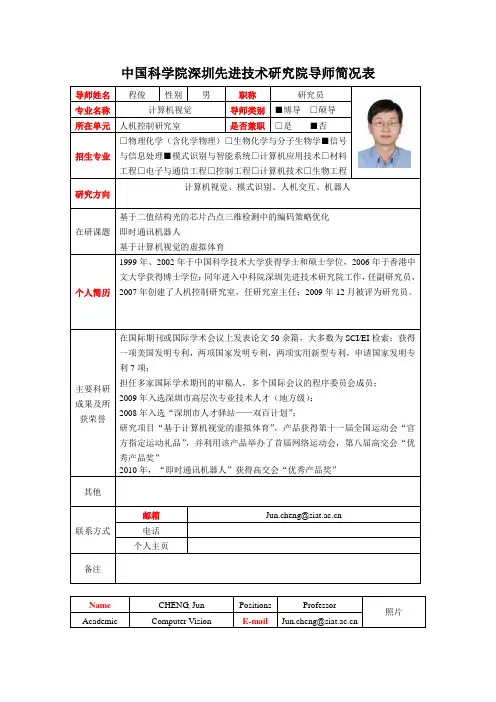 中国科学院深圳先进技术研究院导师简况表
导师姓名 程俊 性别 男 职称 研究员
专业名称 计算机视觉 导师类别 ■博导 □硕导
所在单元 人机控制研究室 是否兼职 □是 ■否
招生专业
□物理化学（含化学物理）□生物化学与分子生物学■信号
与信息处理■模式识别与智能系统□计算机应用技术□材料
工程□电子与通信工程□控制工程□计算机技术□生物工程
研究方向 计算机视觉、模式识别、人机交互、机器人
在研课题
基于二值结构光的芯片凸点三维检测中的编码策略优化
即时通讯机器人
基于计算机视觉的虚拟体育
个人简历
1999 年、2002 年于中国科学技术大学获得学士和硕士学位，2006 年于香港中
文大学获得博士学位；同年进入中科院深圳先进技术研究院工作，任副研究员，
2007 年创建了人机控制研究室，任研究室主任；2009 年 12 月被评为研究员。
主要科研
成果及所
获荣誉
在国际期刊或国际学术会议上发表论文 50 余篇，大多数为 SCI/EI 检索；获得
一项美国发明专利，两项国家发明专利，两项实用新型专利，申请国家发明专
利 7 项；
担任多家国际学术期刊的审稿人，多个国际会议的程序委员会成员；
2009 年入选深圳市高层次专业技术人才（地方级）；
2008 年入选“深圳市人才驿站——双百计划”；
研究项目“基于计算机视觉的虚拟体育”，产品获得第十一届全国运动会“官
方指定运动礼品”，并利用该产品举办了首届网络运动会，第八届高交会“优
秀产品奖”
2010 年，“即时通讯机器人”获得高交会“优秀产品奖”
其他
联系方式
邮箱 Jun.cheng@siat.ac.cn
电话
个人主页
备注
Name CHENG, Jun Positions Professor 照片
Academic Computer Vision E-mail Jun.cheng@siat.ac.cn